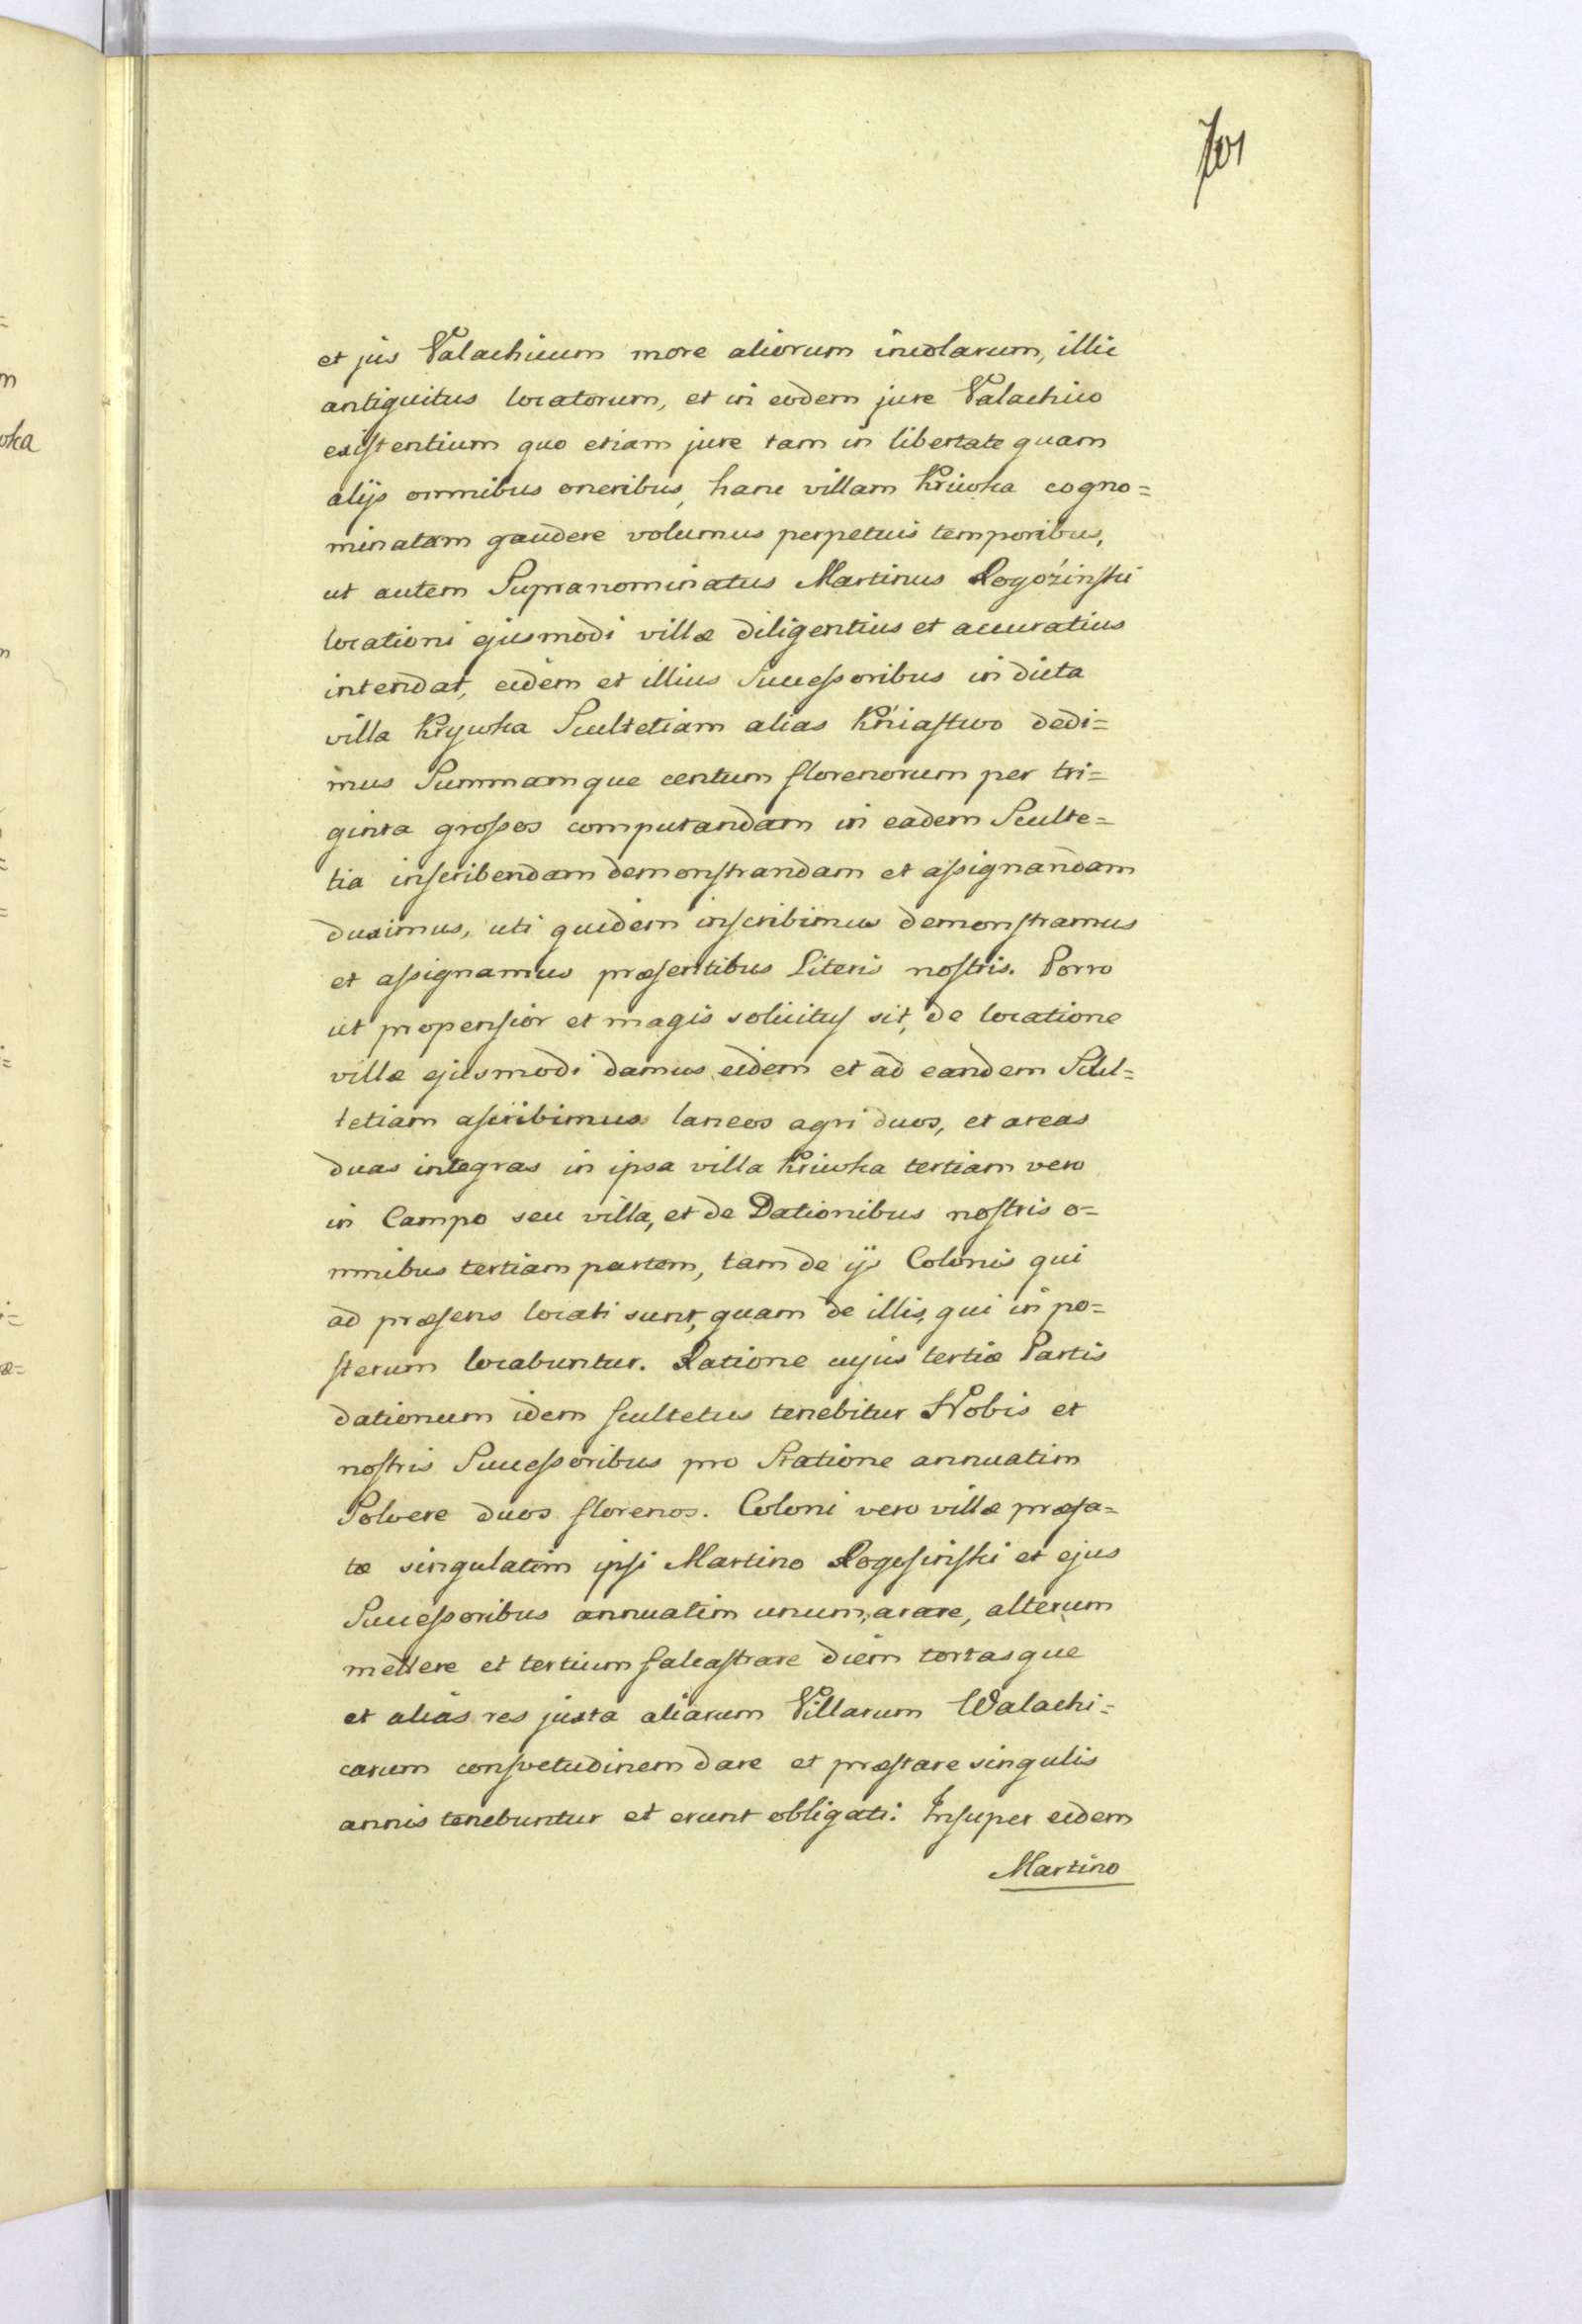 701
et jus Valachicum more aliorum incolarum, illic
antiquitus locatorum, et in eodem jure Valachico
existentium quo etiam jure tam in libertate quam
alijs omnibus oneribus, hanc villam Kriwka cogno=
minatam gaudere volumus perpetuis temporibus,
ut autem Supranominatus Martinus Rogoźinski
locationi ejusmodi villæ diligentius et accuratius
intendat, eidem et illius Successoribus in dicta
villa Krywka Scultetiam alias Kniastwo dedi=
mus Summamque centum florenorum per tri=
ginta grossos computandam in eadem Sculte=
tia inscribendam demonstrandam et assignandam
duximus, uti quidem inscribimus demonstramus
et assignamus præsentibus Literis nostris. Porro
ut propensior et magis solicitus sit, de locatione
villæ ejusmodi damus eidem et ad eandem Scul=
tetiam ascribimus laneos agri duos, et areas
duas integras in ipsa villa Kriwka tertiam vero
in Campo seu villa, et de Dationibus nostris o=
mnibus tertiam partem, tam de ijs Colonis qui
ad præsens locati sunt, quam de illis, qui in po=
sterum locabuntur. Ratione cujus tertiæ Partis
dationum idem scultetus tenebitur Nobis et
nostris Successoribus pro Statione annuatim
Solvere duos florenos. Coloni vero villæ præfa=
tæ singulatim ipsi Martino Rogosinski et ejus
Successoribus annuatim unum, arare, alterum
mettere et tertium falcastrare diem tortasque
et alias res juxta aliarum Villarum Walachi=
carum consvetudinem dare et præstare singulis
annis tenebuntur et erunt obligati. Insuper eidem
Martino
wka